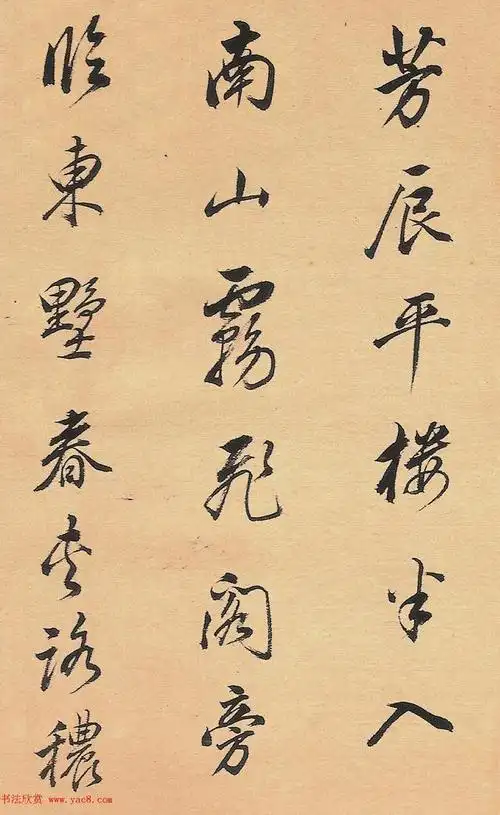 芳辰平樓半入
南山霧飛閣旁
臨東墅春夾路穠
书法欣赏 www.yac8.com